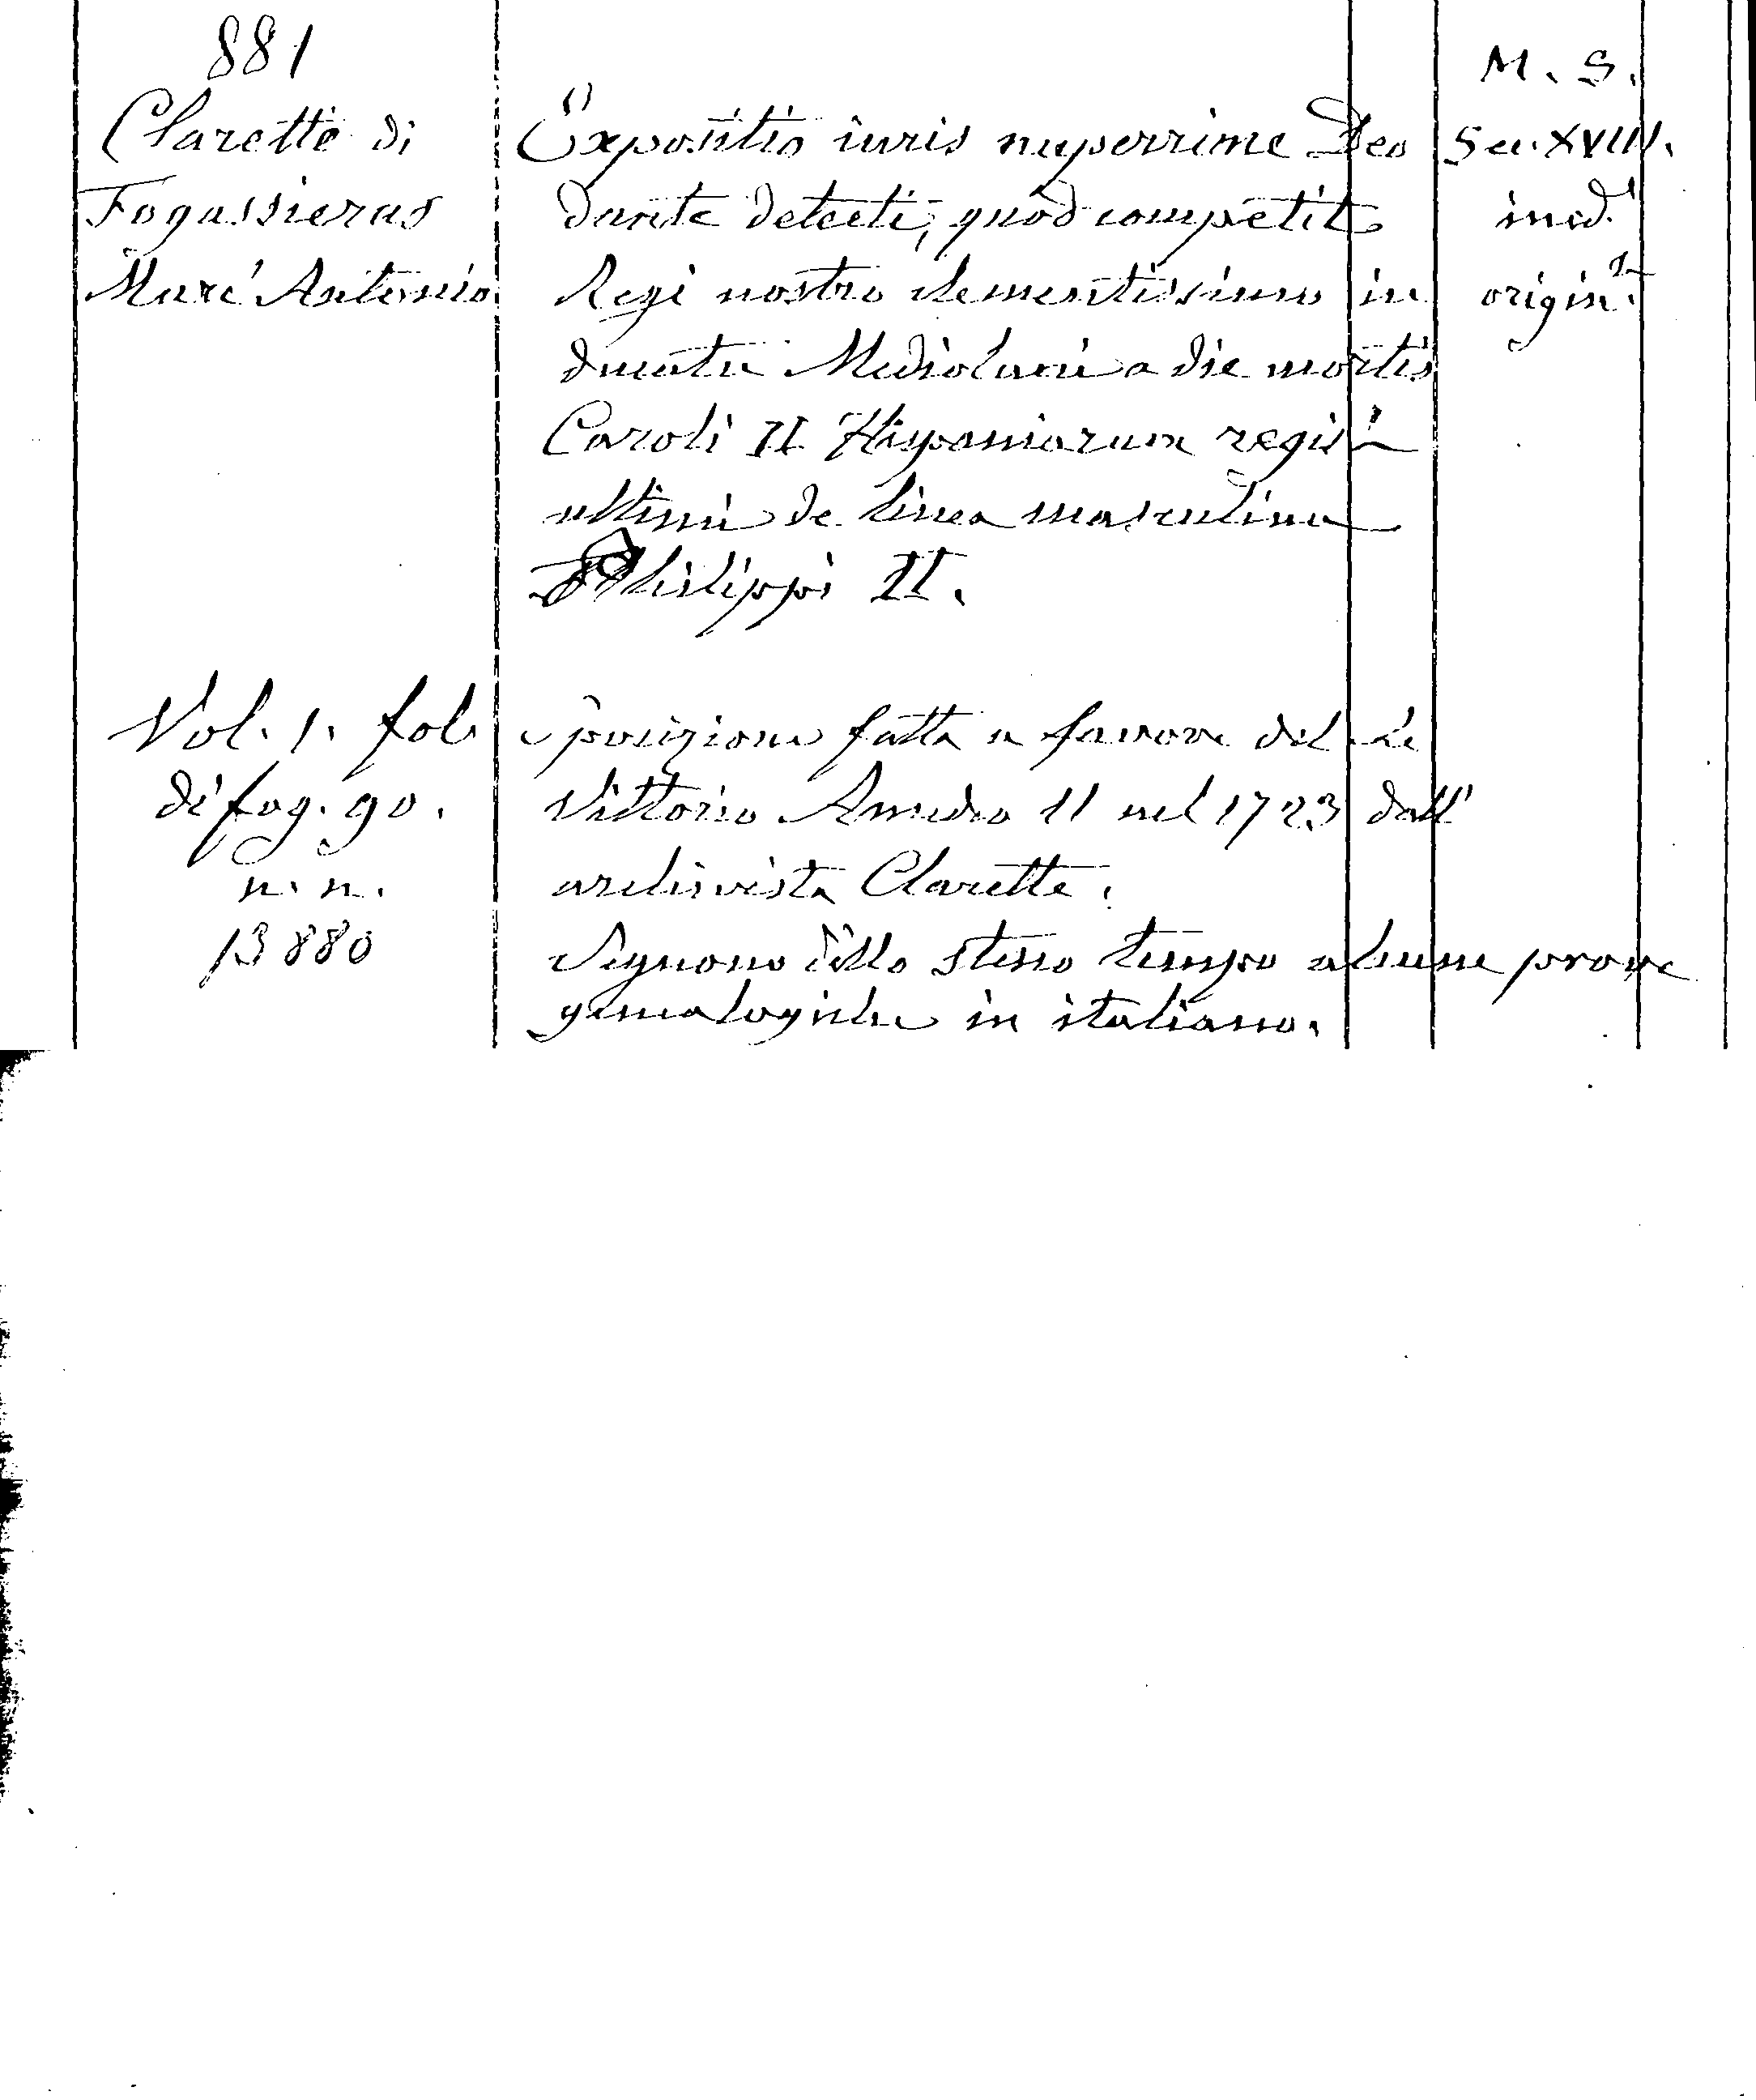 881
Claretta di
Fogassieras
Marc' Antonio
Vol. 1. fol.
di fog. 90.
n. n.
13880
Expositio iuris nuperrime Deo
dante detecti, quod competit
Regi nostro clementissimo in
ducatu Mediolani a die mortis
Caroli II Hispaniarum regis
ultimi de linea masculina
Philippi II.
Sposizione fatta a favore del re
Vittorio Amedeo II nel 1723 dall'
archivista Claretta.
Seguono dello stesso tempo alcune prove
genealogiche in italiano.
M. S.
Sec. XVIII.
ined.
origin.